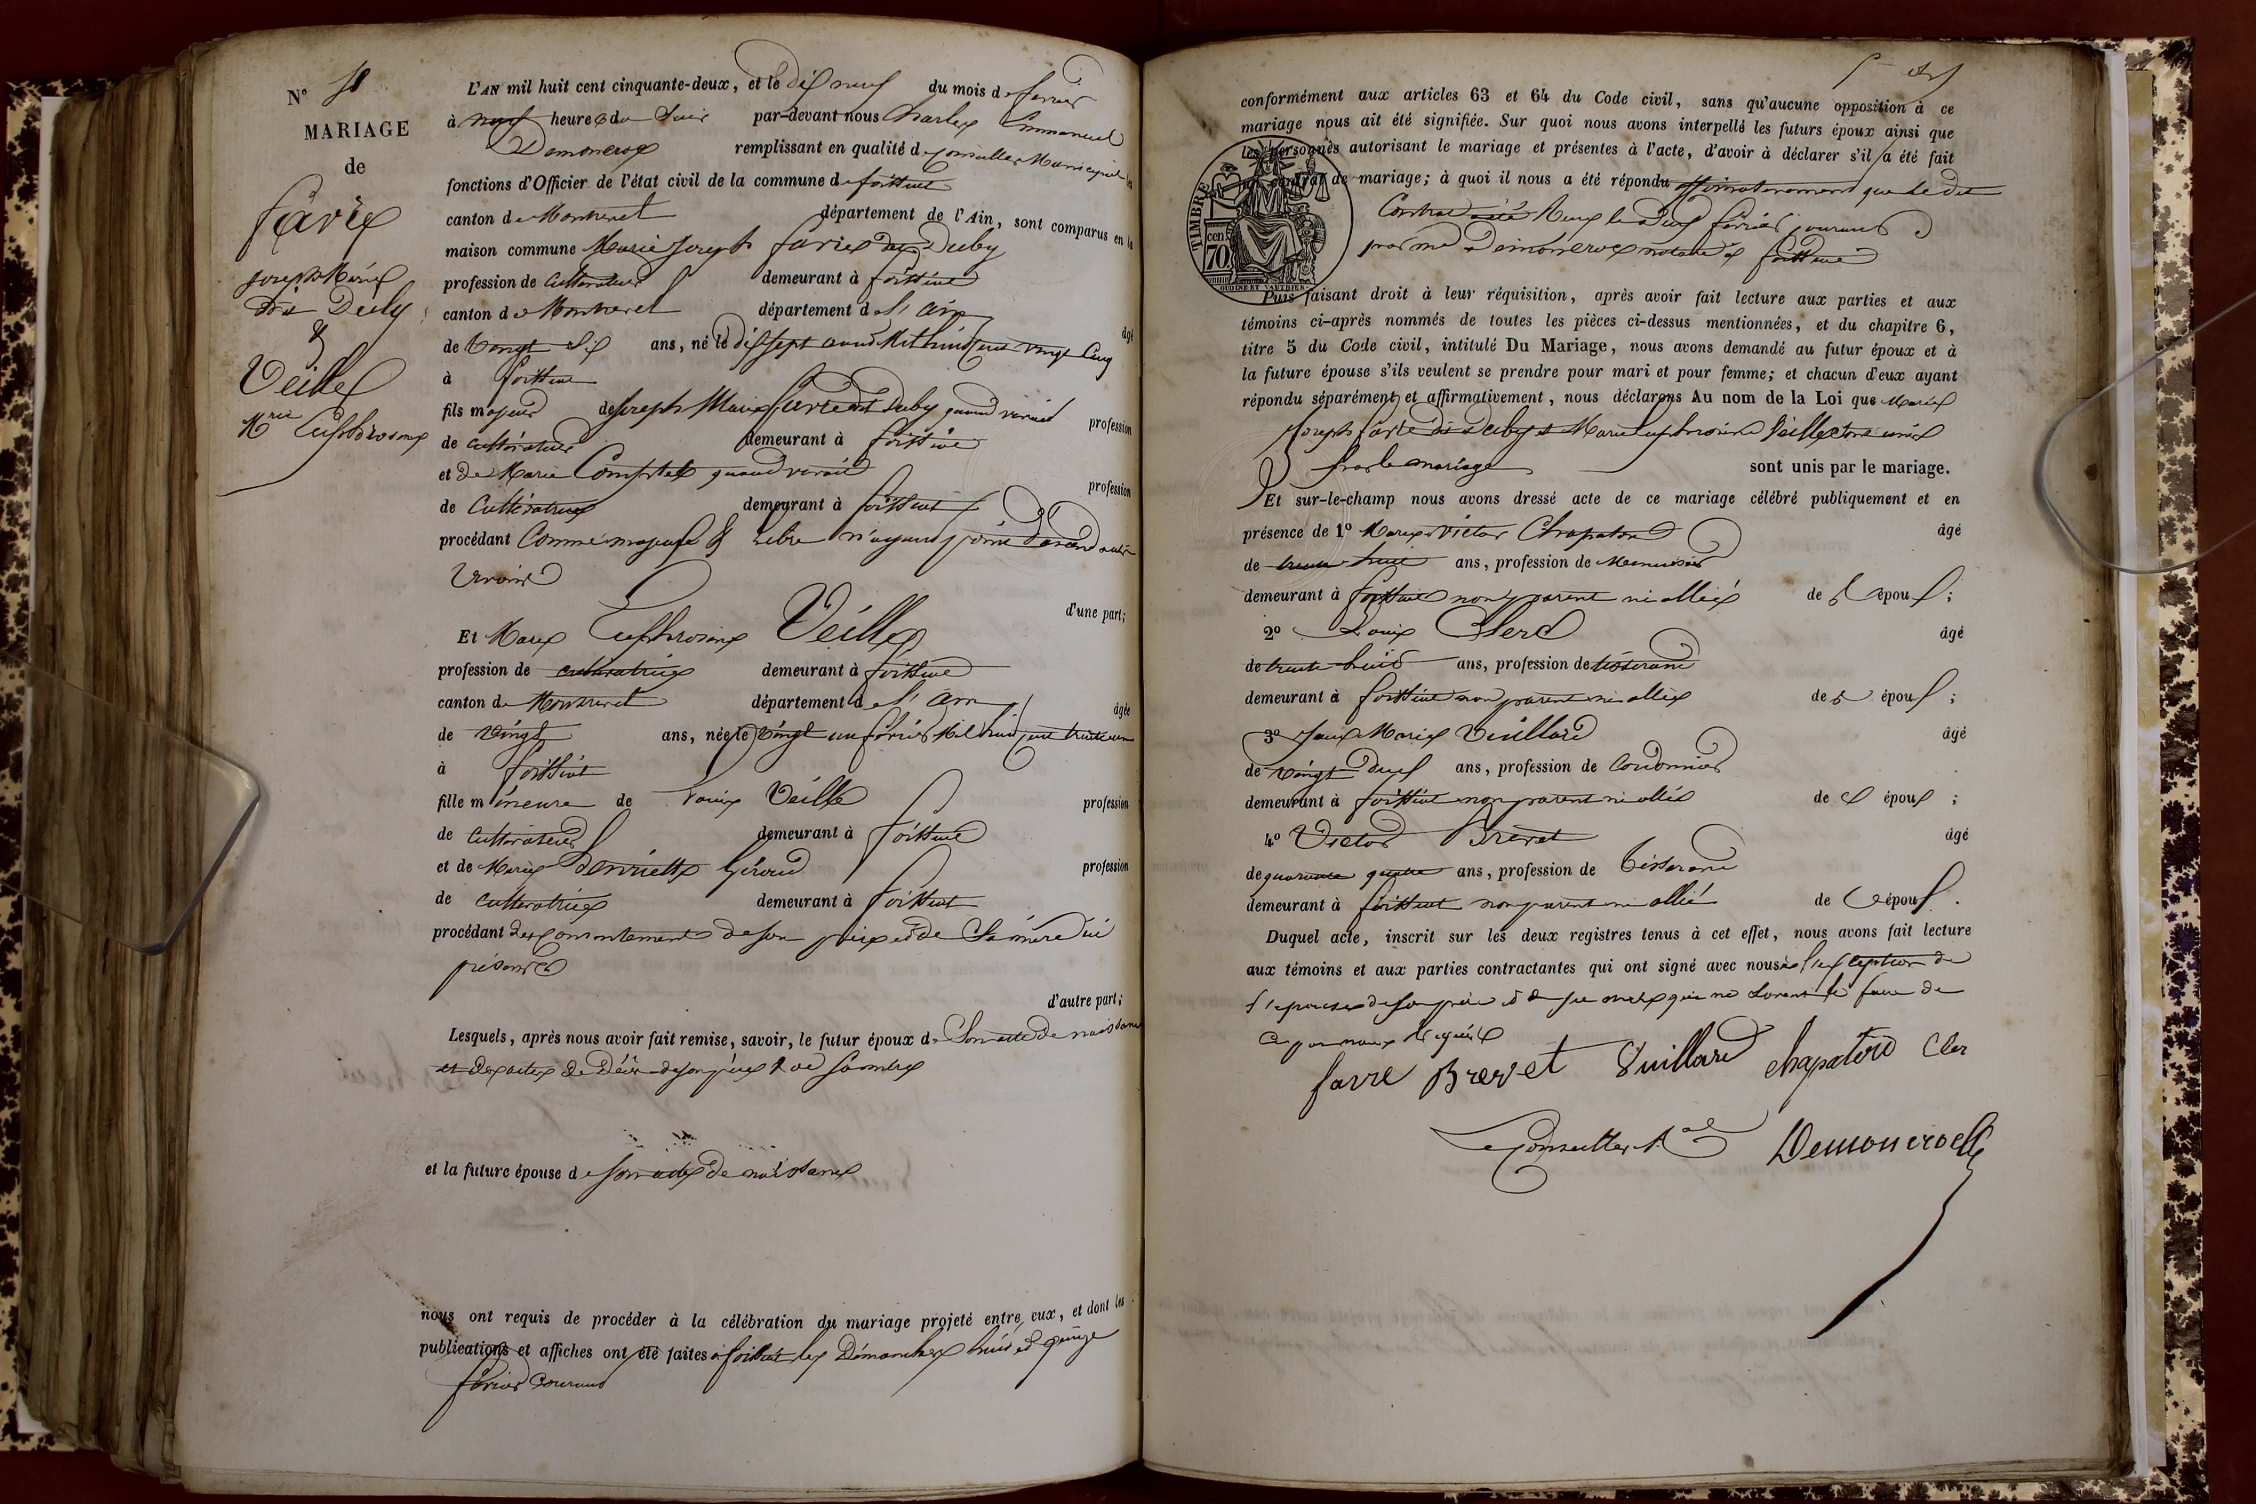 N°
MARIAGE
de
favre
Joseph Marie
dit Duby
&
Veille
Mrie Euphrosine
L'AN mil huit cent cinquante-deux, et le dix neuf du mois de fevrier
à neuf heures du Soir par-devant nous Charles Emmanuel
Demoncroix remplissant en qualité de conseiller Municipal les
fonctions d'Officier de l'état civil de la commune de foissiat
canton de Montrevel département de l'Ain, sont comparus en la
maison commune Marie Joseph favre dit Duby
profession de cultivateur demeurant à foissiat
canton de Montrevel département de l'ain âgé
de Vingt Six ans, né le dix sept avril Mil huit cent vingt Cinq
à foissiat
fils majeur de Joseph Marie favre dit Duby quand vivait profession
de cultivateur demeurant à foissiat
et de Marie quand vivait profession
de Cultivatrice demeurant à foissiat
procédant Comme majeur & Libre n'ayant point d'ascendant
vivant
d'une part;
Et Marie Euphrosine Veille
profession de cultivatrice demeurant à foissiat
canton de Montrevel département de l'ain âgée
de Vingt ans, née le vingt un février Mil huit cent trente un
à foissiat
fille mineure de Louis Veille profession
de cultivateur demeurant à foissiat
et de Marie Henriette Géroud profession
de cultivatrice demeurant à foissiat
procédant du consentement de son père et de Sa mère ici
présents
d'autre part;
Lesquels, après nous avoir fait remise, savoir, le futur époux de Son acte de naissance
et des actes de Décès de son père & de Sa mère
et la future épouse de son acte de naissance
nous ont requis de procéder à la célébration du mariage projeté entre eux, et dont les
publications et affiches ont été faites à foissiat les Dimanches huit et quinze
février Courant
conformément aux articles 63 et 64 du Code civil, sans qu'aucune opposition à ce
mariage nous ait été signifiée. Sur quoi nous avons interpellé les futurs époux ainsi que
les personnes autorisant le mariage et présentes à l'acte, d'avoir à déclarer s'il a été fait
contrat de mariage; à quoi il nous a été répondu affirmativement que le dit
Contrat a été Reçu le Dix février courant
par me Demoncroix notaire à foissiat
TIMBRE
70 cen.
OUDINE ET VAUTHIER
Puis faisant droit à leur réquisition, après avoir fait lecture aux parties et aux
témoins ci-après nommés de toutes les pièces ci-dessus mentionnées, et du chapitre 6,
titre 5 du Code civil, intitulé Du Mariage, nous avons demandé au futur époux et à
la future épouse s'ils veulent se prendre pour mari et pour femme; et chacun d'eux ayant
répondu séparément et affirmativement, nous déclarons Au nom de la Loi que Marie
Joseph favre dit Duby & Marie Euphrosine Veille sont unis
par le mariage sont unis par le mariage.
Et sur-le-champ nous avons dressé acte de ce mariage célébré publiquement et en
présence de 1° Marie Victor Chapaton âgé
de trente huit ans, profession de Menuisier
demeurant à foissiat non parent ni allié de l'époux;
2° Louis Clerc âgé
de trente huit ans, profession de tisserand
demeurant à foissiat non parent ni allié de l'époux;
3° Jean Marie Vuillard âgé
de vingt Deux ans, profession de Cordonnier
demeurant à foissiat non parent ni allié de l'époux;
4° Victor Brevet âgé
de quarante quatre ans, profession de tisserand
demeurant à foissiat non parent ni allié de l'époux.
Duquel acte, inscrit sur les deux registres tenus à cet effet, nous avons fait lecture
aux témoins et aux parties contractantes qui ont signé avec nous à l'exception de
l'épouse de son père et de sa mère qui ne savent le faire de
ce par nous Requis
favre Brevet Vuillard chapaton Cler
Le Conseiller Mal Demoncroix